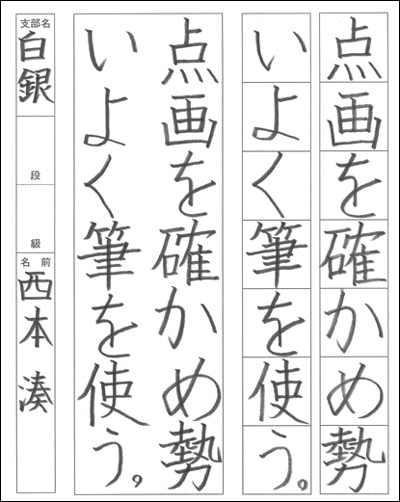 点画を確かめ勢
いよく筆を使う。
点画を確かめ勢
いよく筆を使う。
支部名
白銀
段
級
名前
西本 湊